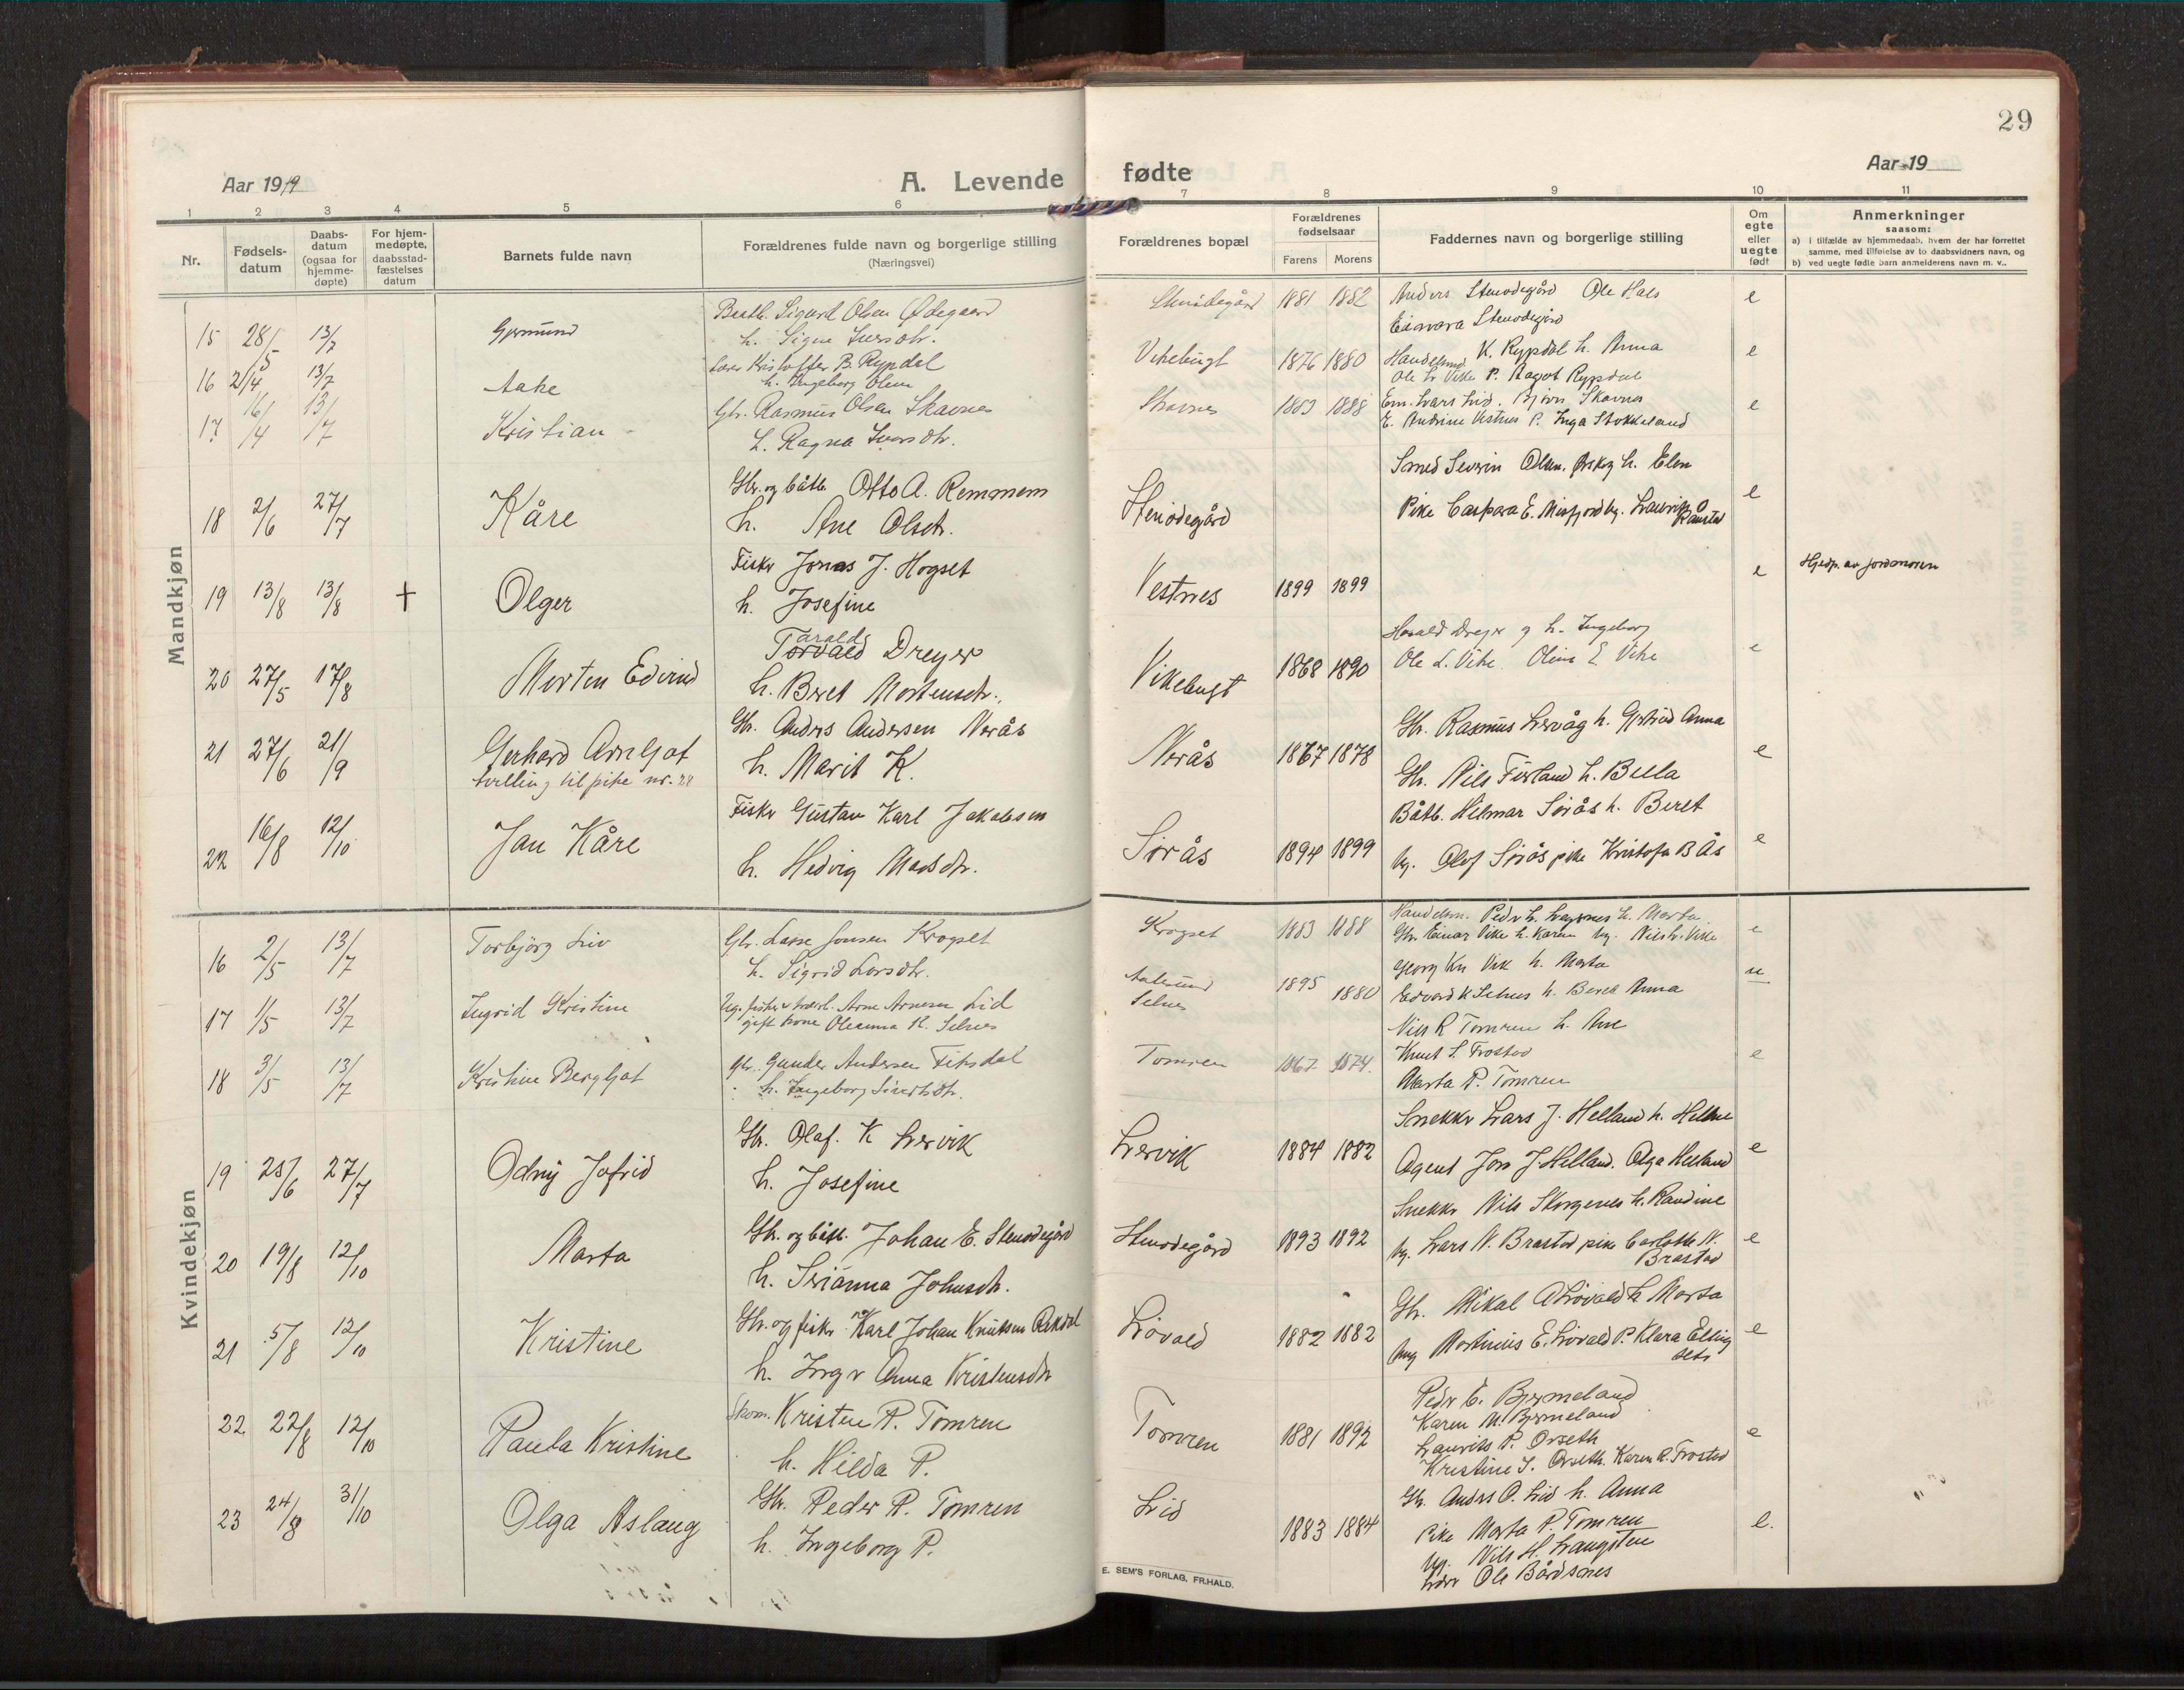 29
Aar 1919
A. Levende fødte
Aar 19
1 2 3 4 5 6 7 8 9 10 11
Nr.
Fødsels-datum
Daabs-datum (ogsaa for hjemme-døpte)
For hjem-medøpte, daabsstad-fæstelses datum
Barnets fulde navn
Forældrenes fulde navn og borgerlige stilling
(Næringsvei)
Forældrenes bopæl
Forældrenes fødselsaar
Farens Morens
Faddernes navn og borgerlige stilling
Om egte eller uegte født
Anmerkninger
saasom:
a) i tilfælde av hjemmedaab, hvem der har forrettet samme, med tilføielse av to daabsvidners navn, og
b) ved uegte fødte barn anmelderens navn m. v..
Mandkjøn
15 28/5 13/7 Gjermund Sigurd Olsen Ødegaard 1881 1882 Anders Stenødegård Ole Hals e
h. Signe Iversdtr.
16 2/4 13/7 Aake Kristoffer B. Rypdal Vikebugt 1876 1880 Handelsmd. K. Rypdal h. Anna e
h. Ingeborg Olsen Ole L. Vike P. Rypdal
17 16/4 13/7 Kristian Gbr. Rasmus Olsen Skavnes Skavnes 1883 1888 Bjørn Skavnes e
h. Ragna Iversdtr. E. Andrine Vestnes P. Inga Stokkeland
18 2/6 27/7 Kåre Gbr. og båtb. Otto A. Remmem Stenødegård Smed Severin Olsen, Ørskog h. Elen e
h. Ane Olsdtr. Pike Caspara E. Misfjord
19 13/8 13/8 + Olger Fisker Jonas J. Hogset Vestnes 1899 1899 e Hjedp. av jordmoren
h. Josefine
20 27/5 17/8 Morten Edvind Torvald Harald Dreyer Vikebugt 1868 1890 Harald Dreyer og h. Ingeborg e
h. Beret Mortensdtr. Ole L. Vike Olina E Vike
21 27/6 21/9 Gerhard Arnljot Gbr. Anders Andersen Nerås Nerås 1867 1878 Gbr. Rasmus Lervåg h. Gjertrud Anna e
tvilling til pike nr. h. Marit K. Gbr. Nils Furland h. Bella
22 16/8 12/10 Jan Kåre Fisker Gustav Karl Jakobsen Sørås 1894 1899 Båtb. Hilmar Sørås h. Beret e
h. Hedvig Madsdtr. Ug. Olof Sørås pike Kristofa B Ås
Kvindekjøn
16 2/5 13/7 Torbjörg Liv Gbr. Lasse Jonsen Krogset Krogset 1883 1888 Handelsm. Peder h. Marta e
h. Sigrid Larsdtr. Gbr. Einar Vike h. Karen ug. Nils Vike
17 1/5 13/7 Ingrid Kristine Ug. fisker Arne Arnesen Lid Aalesund 1895 1880 Georg Kn Vik h. Marta u
gift kone Oleanna K. Selnes Selnes Edvard K Selnes h. Beret Anna
18 3/5 13/7 Kristine Bergljot Gbr. Gunder Andersen Fiksdal Tomren 1867 1874 Nils R Tomren h. Ane e
h. Ingeborg Sivertsdtr. Knut L. Frostad
Marta P. Tomren
19 25/6 27/7 Odny Jofrid Gbr. Olaf K Lervik Lervik 1884 1882 Snekker Lars J. Helland h. Helene e
h. Josefine Agent Jon J. Helland. Olga Helland
20 19/8 12/10 Marta Gbr. og båtb. Johan E. Stenødegård Stenødegård 1893 1892 Snekker Nils Skorgenes h. Randine e
h. Serianna Johnsdtr. Ug. Lars N. Brastad pike Carlotte N. Brastad
21 5/8 12/10 Kristine Gbr. og fisker Karl Johan Knutsen Løvold 1882 1882 Gbr. Mikal A Løvold h. Marta e
h. Inger Anna Kristensdtr Ung Martinus E. Løvold P. Klara
22 22/8 12/10 Paula Kristine Skom. Kristen P. Tomren Tomren 1881 1892 Peder E. Bjermeland e
h. Hilda P. Karen M. Bjermeland
Laurits P. Orseth
Kristine J. Orseth. Karen R. Frostad
23 24/8 31/10 Olga Aslaug Gbr. Peder P. Tomren Lid 1883 1884 Gbr. Anders O. Lid h. Anna e.
h. Ingeborg P. Pike Marta P. Tomren
Ug. Nils H. Langsten
Ole Bårdsnes
E. SEM'S FORLAG, FR.HALD.